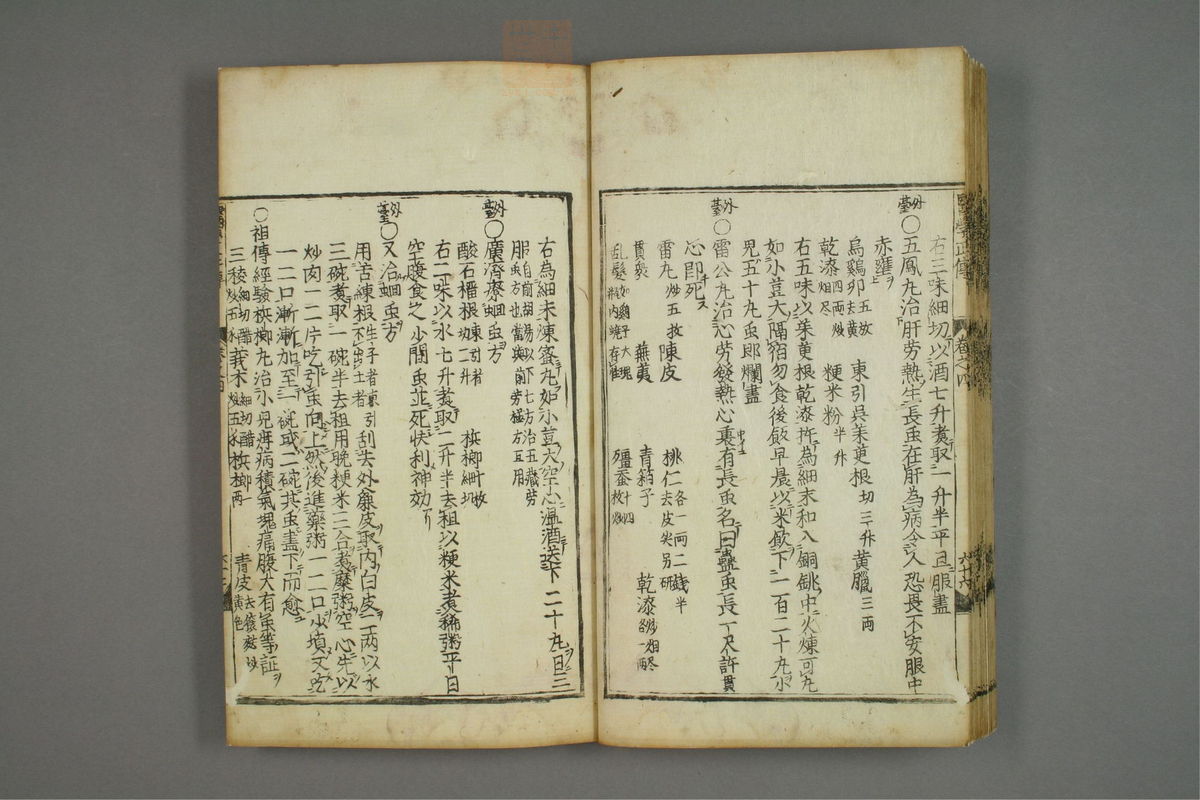 右三味細切以酒七升煮取一升半平旦服盡
外臺〇五鳳丸治肝勞熱生長虫在肝為病令人恐畏不安眼中
赤薤上
烏鷄卵五枚去黄 東引呉茱萸根切三升 黄臘三両
乾漆四両炒烟尽 粳米粉半升
右五味以茱萸根乾漆擣為細末和入銅銚中火煉可丸
如小荳大隔宿勿食後飲早晨以米飲下一百二十丸小
児五十九虫即爛盡
外臺〇雷公丸治心勞發熱心裏有長虫名曰蠱虫長一尺許貫
心即死
雷丸炒五枚 陳皮 桃仁各一両二銭半去皮尖另研
貫衆 蕪荑 青箱子 乾漆炒烟尽各一両
乱髮如鷄子大一塊 殭蚕十四枚炒
右為細末煉蜜丸如小荳大空心温酒送下二十丸日三
服自前胡湯以下七方治五臟勞虫方也當與前勞極方互用
外臺〇廣濟療蛔虫方
酸石榴根東引者二升切 檳榔十枚細切
右二味以水七升煮取二升半去租以粳米煮稀粥平旦
空腹食之少間虫並死快利神効
外臺〇又治蛔虫方
用苦練根生子者不出土者東引刮去外麁皮取内白皮二両以水
三碗煮取一碗半去租用晚粳米三合煮糜粥空心先以
炒肉一二片吃引虫向上然後進藥粥一二口少塡又吃
一二口漸漸加至一碗或二碗其虫盡下而愈
〇祖傳經驗檳榔丸治小兒疳病積氣塊痛腹大有虫等証
三稜細切醋炒五銭 莪术細切醋炒五銭 檳榔一両 青皮去穰麩炒黄色